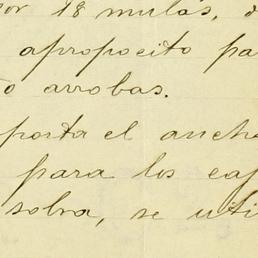 por 18 mulas, d
apropocito pa
to arrobas.
porta el anch
para los ca
sobra, se uti